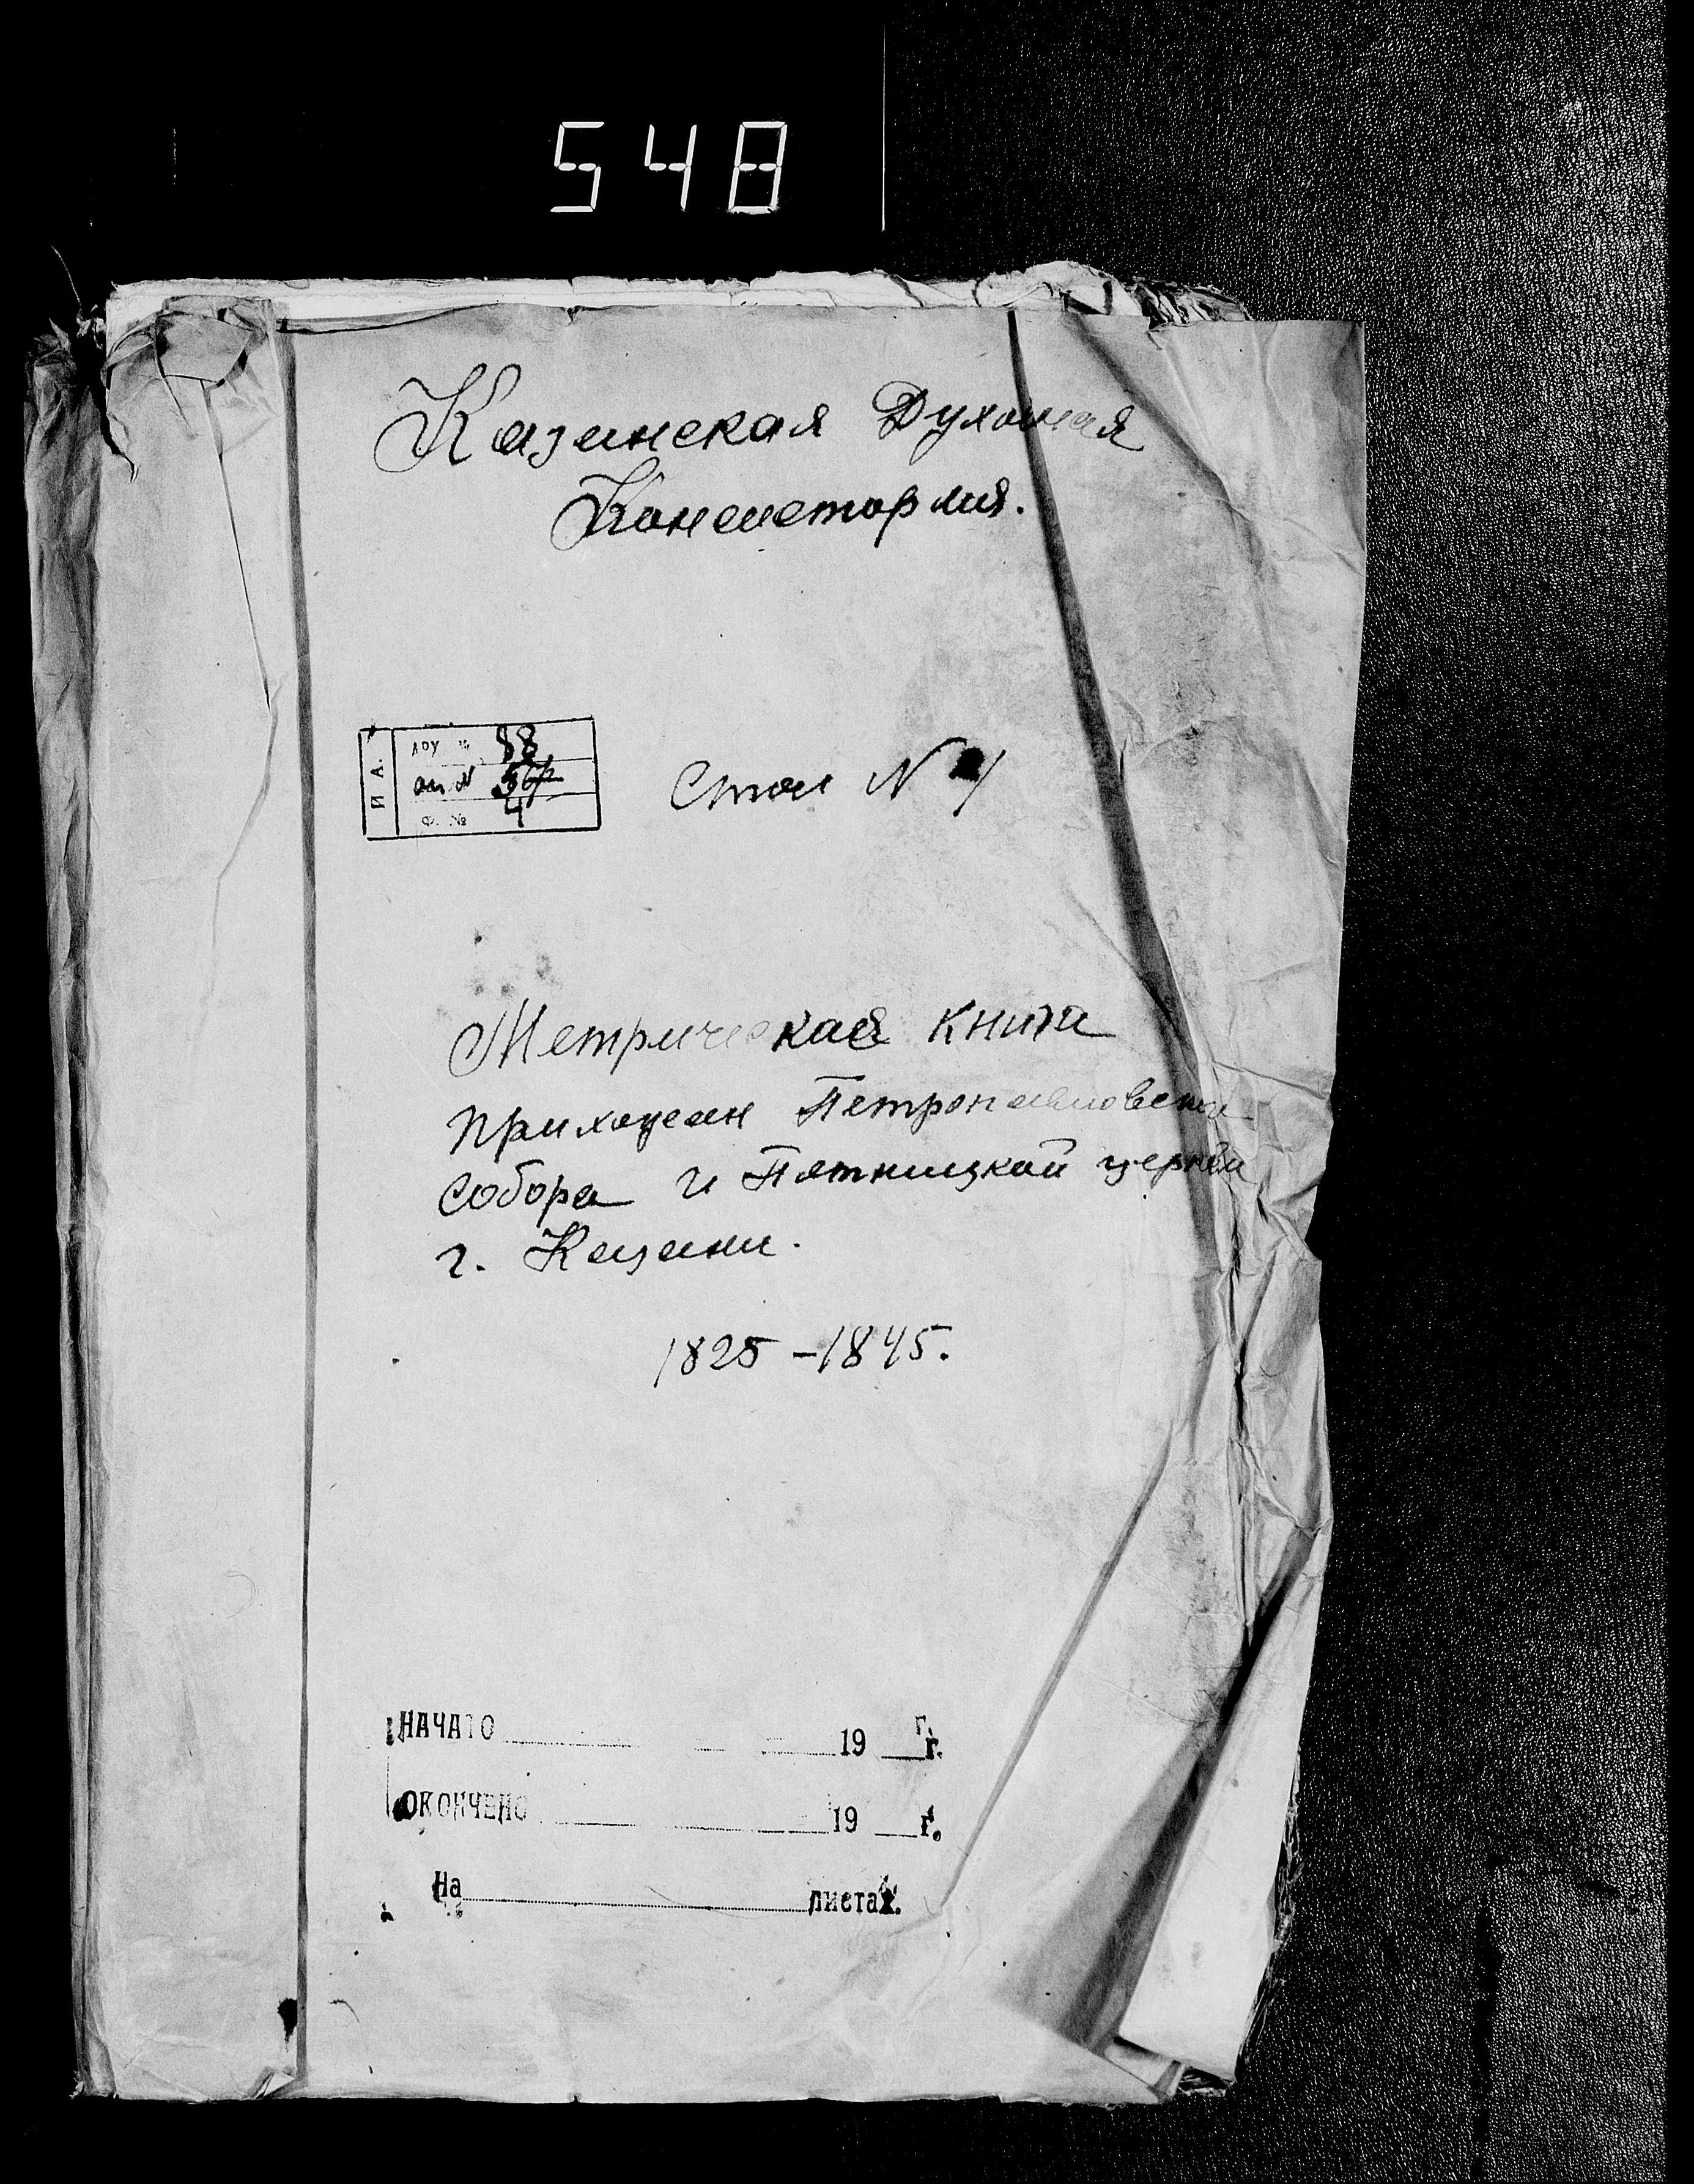 548
Казанская Духовная
Консистория.
И А.
АРУ № 88
оп №
Ф. № 4
Стол N
Метрическая книга
прихожан Петропавловского
собора и Пятницкой церкви
г. Казани.
1825 - 1845.
НАЧАТО 19 г.
ОКОНЧЕНО 19 г.
На листах.